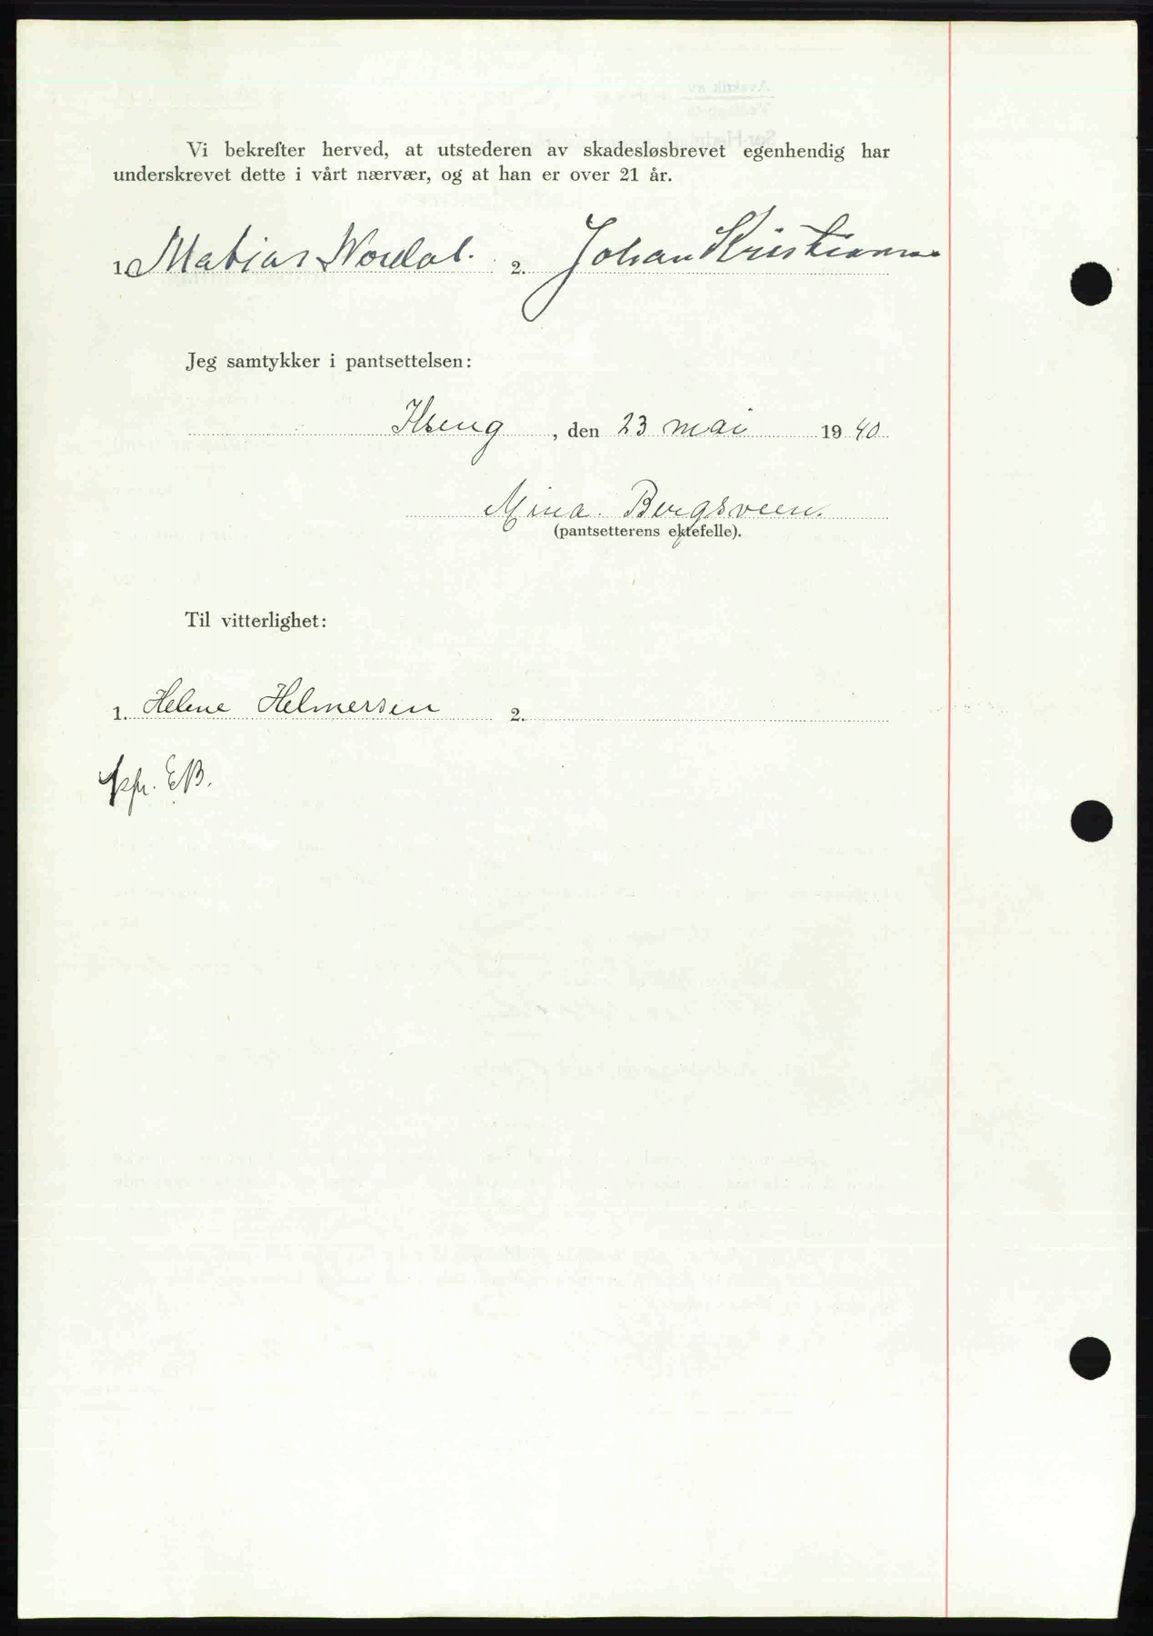 Vi bekrefter herved, at utstederen av skadesløsbrevet egenhendig har
underskrevet dette i vårt nærvær, og at han er over 21 år.
1. Matias Nordal. 2. Johan Kristiansen
Jeg samtykker i pantsettelsen:
Ilseng, den 23 mai 1940
Mina. Bergsveen.
(pantsetterens ektefelle).
Til vitterlighet:
1. Helene Helmersen 2.
EB.